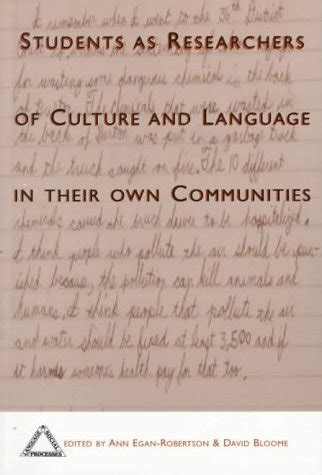 I remember when I went to the 36th District
STUDENTS AS RESEARCHERS
for wasting some dangerous chemicals in the back
OF CULTURE AND LANGUAGE
the back of was put in a garbage truck
and the truck caught on fire. The 10 different
IN THEIR OWN COMMUNITIES
chemicals caused the truck driver to be hospitalized.
I think people who pollute the air should be pun-
ished because, the pollution can kill animals and
humans. I think people that pollute the air
and water should be fined at least 3,500 and if
it harms someones health pay for that too.
LANGUAGE
SOCIAL
PROCESSES
EDITED BY ANN EGAN-ROBERTSON & DAVID BLOOME